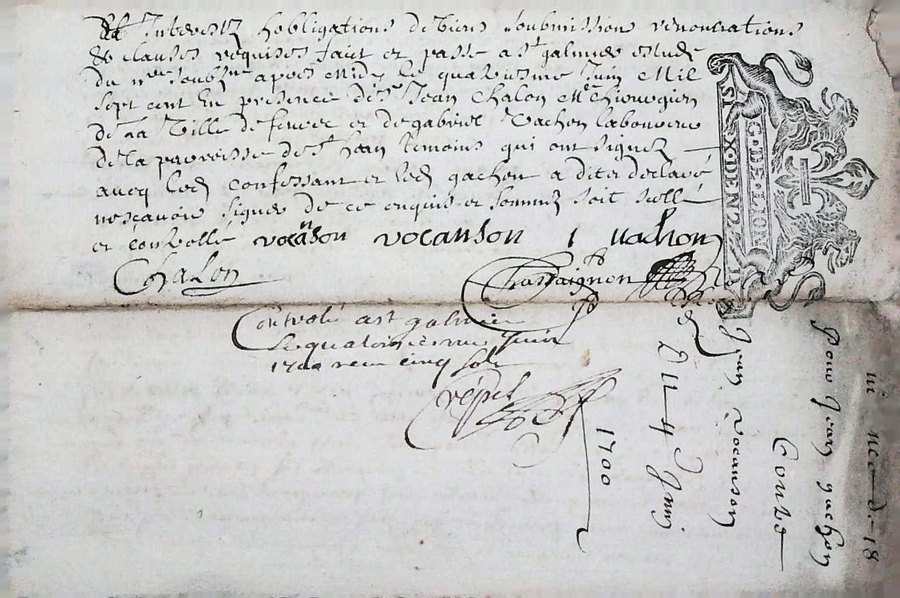 Interestz hobligations de biens soubmissions renontiations
& clauses requises faict et passe a st galmier estude
du nre soubsne apres midy le quatriesme Juin Mil
sept cent En presence de sr Jean Chalon Me Chirurgien
de la Ville de et de gabriel Vachon laboureur
de la parroisse de st Jean temoins qui ont signez
avecq led confessant et led gachon a dit et declaré
ne scavoir signer de ce enquis et sommé soit scellé
et controllé vocanson vocanson i vachon
Chalon Chassaignon
Controlé a st galmier
le quatorziesme Juin
1700 receu cinq sols
Crépet
SIX·DEN
G·DE·LION
Du 4 Juin
1700
Jean vocanson
Contre
Pour Jean gachon